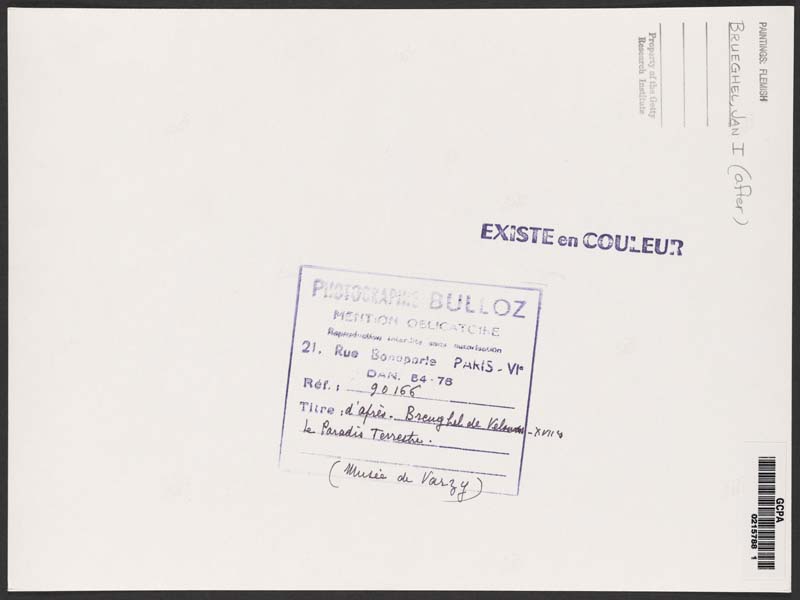 PAINTINGS: FLEMISH
BRUEGHEL, JAN I (after)
Property of the Getty
Research Institute
EXISTE en COULEUR
PHOTOGRAPHIE BULLOZ
MENTION OBLIGATOIRE
Reproduction interdite sans autorisation
21, Rue Bonaparte PARIS - VIe
DAN. 84-78
Réf.: 90166
Titre: d'après. Breughel de Velours - XVIIe
Le Paradis Terrestre.
(Musée de Varzy)
GCPA
0215788 1